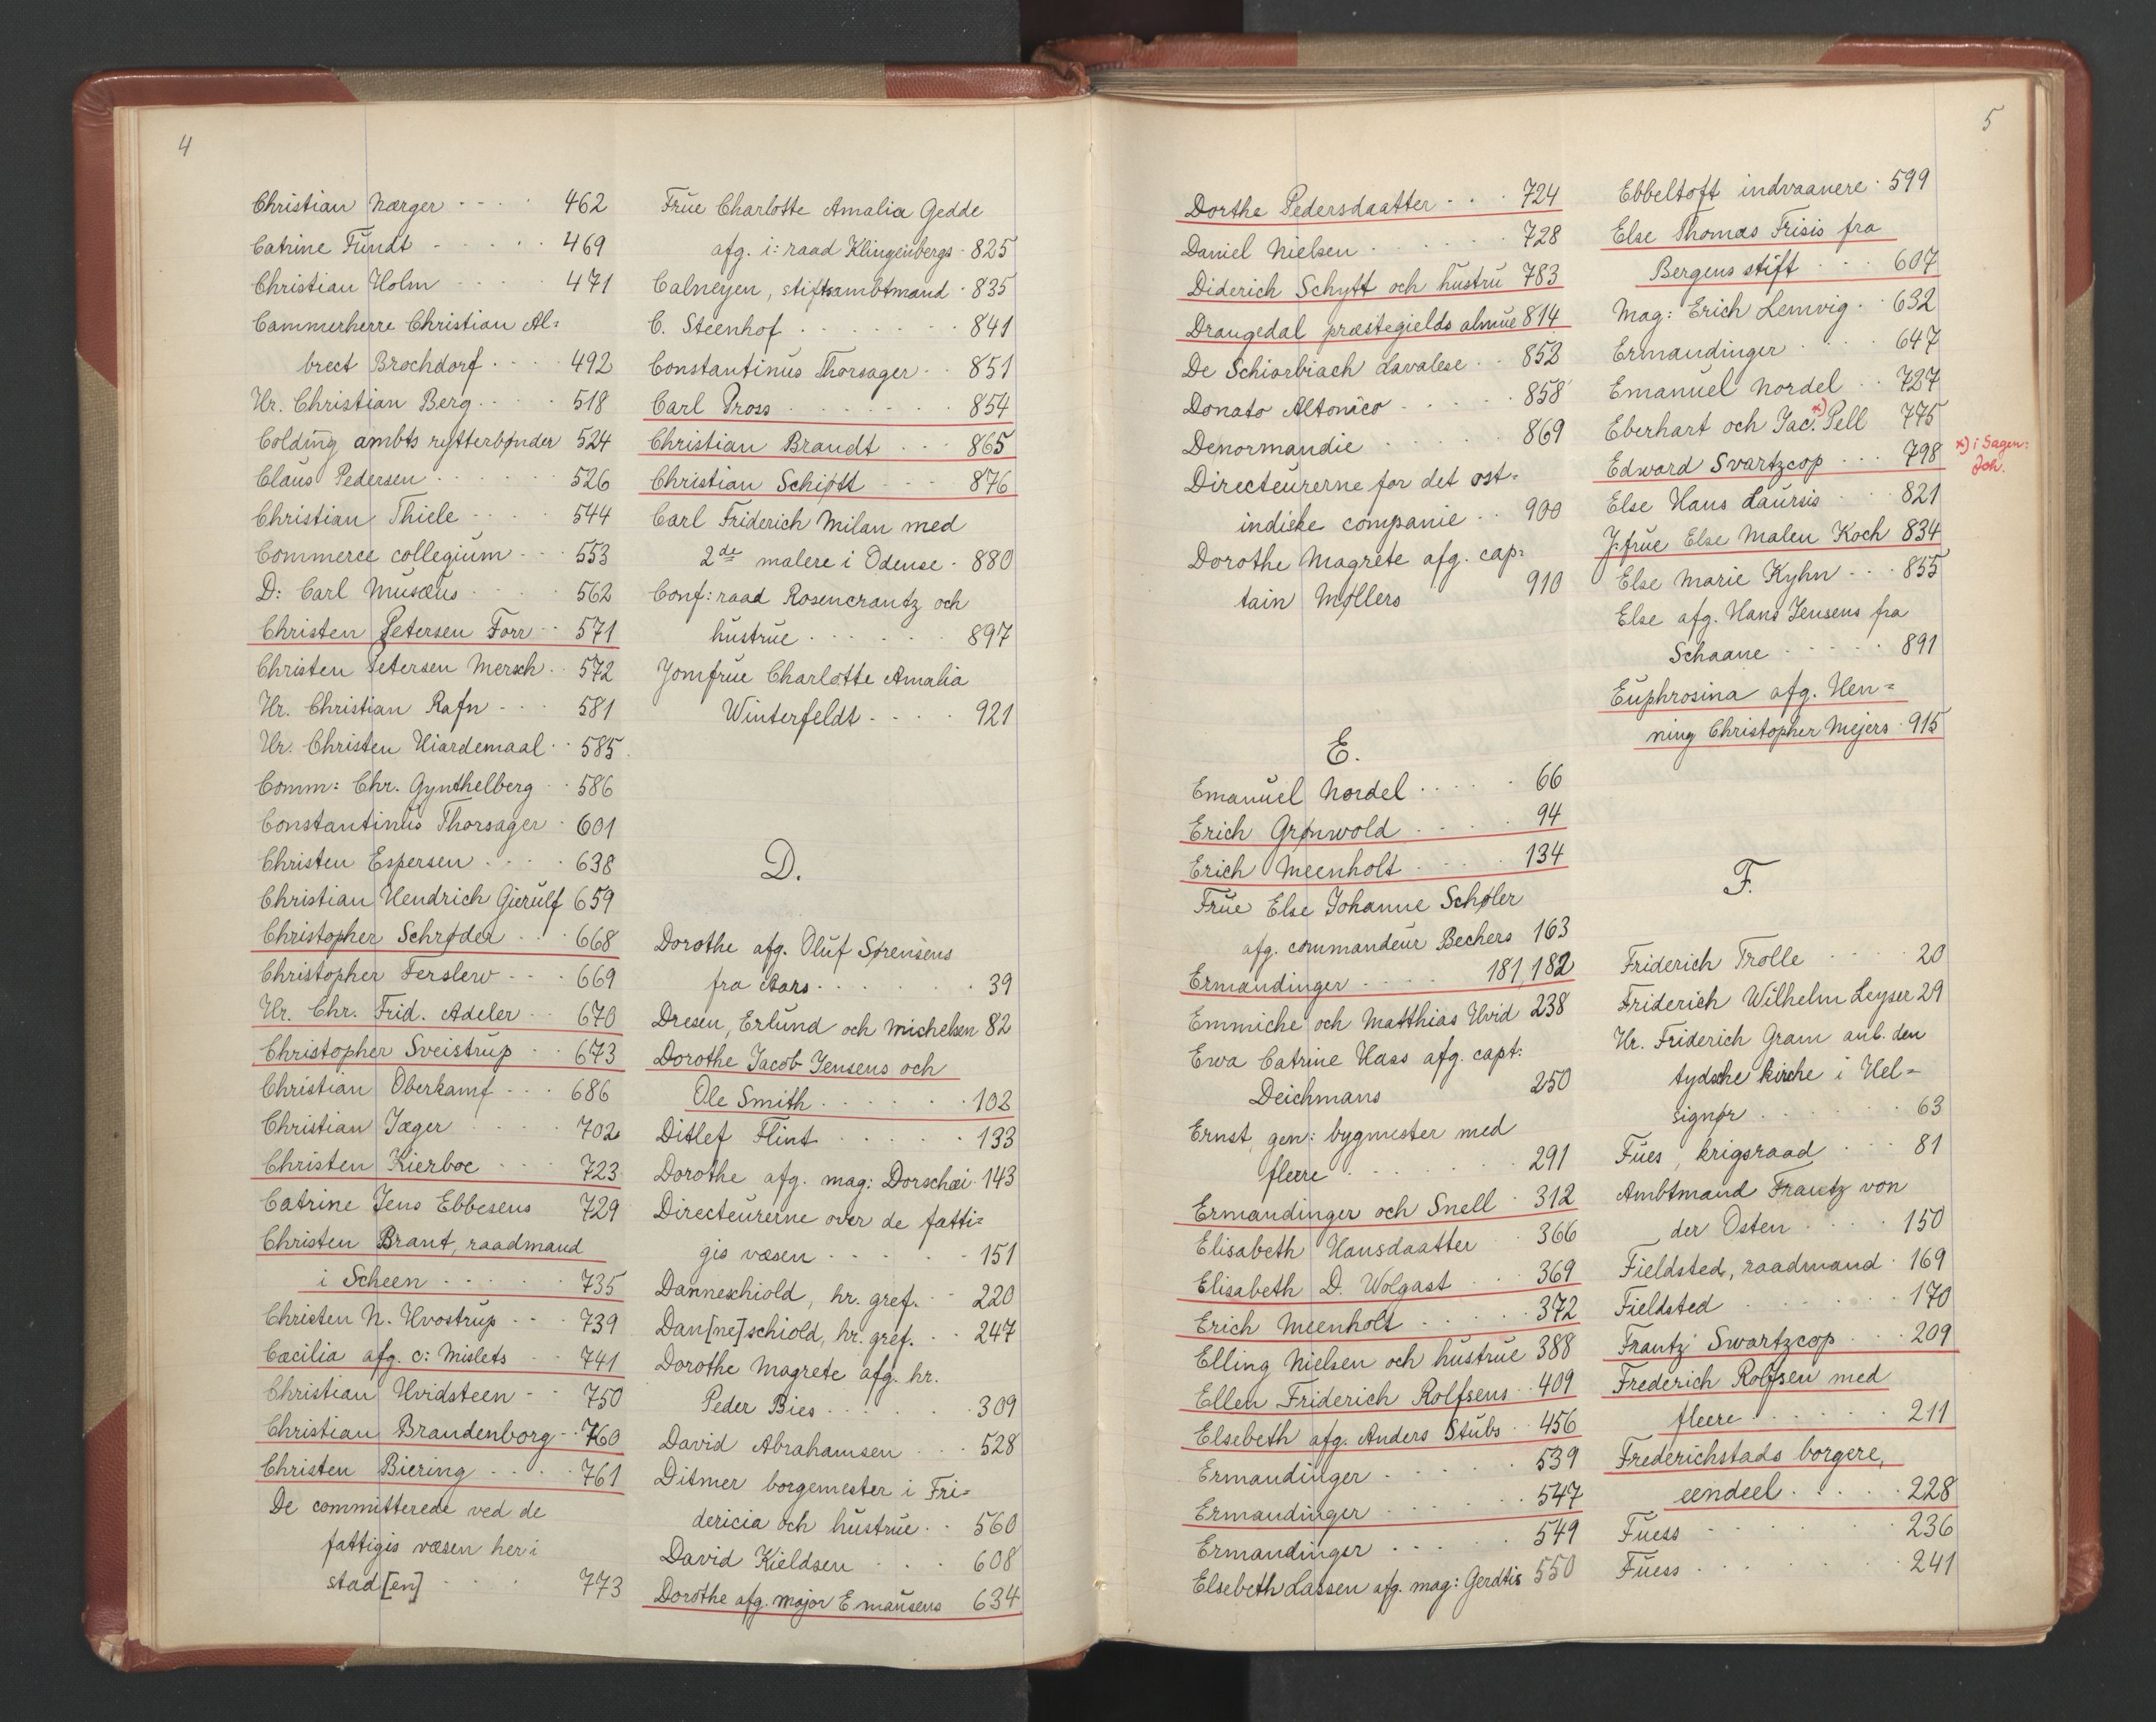 4
Christian Nærger - - - · 462
Catrine Fundt - · · · · 469
Christian Holm - · · · 471
Cammerherre Christian Al=
brect Brochdorf · - · · 492
Hr. Christian Berg · - · · 518
Colding ambts rytterbønder 524
Claus Pedersen · · · · · · 526
Christian Thiele - · · · 544
Commerce collegium - - · 553
D: Carl Musæus · · · · 562
Christen Petersen Forr · · 571
Christen Petersen Mersch · · 572
Hr. Christian Rafn - · · 581
Hr. Christen Hiardemaal · · 585
Comm: Chr. Gynthelberg · · 586
Constantinus Thorsager · 601
Christen Espersen · · · · 638
Christian Hendrich Gierulf 659
Christopher Schrøder · · · 668
Christopher Ferslew - - · 669
Hr. Chr. Frid. Adeler · · 670
Christopher Sveistrup · · 673
Christian Oberkamf - - · 686
Christian Jæger · · · · 702
Christen Kierboe - - · 723
Catrine Jens Ebbesens 729
Christen Brant, raadmand
i Scheen - · · · · 735
Christen N. Hvostrup - - · 739
Cæcilia afg. c: Mislets · · 741
Christian Hvidsteen - · 750
Christian Brandenborg - · 760
Christen Biering - · · · 761
De committerede ved de
fattigis væsen her i
stad[en] - · · · 773
Frue Charlotte Amalia Gedde
afg. i: raad Klingenbergs · 825
Calneyen, stiftsambtmand · 835
C. Steenhof · · · · · · · 841
Constantinus Thorsager · · 851
Carl Pross · · · · · · · 854
Christian Brandt · · · 865
Christian Schiøtt - - · 876
Carl Friderich Milan med
2de malere i Odense · 880
Conf: raad Rosencrantz och
hustrue · · · · · · 897
Jomfrue Charlotte Amalia
Winterfeldt - · · · 921
D.
Dorothe afg. Oluf Sørensens
fra Aars · · · · · · · 39
Dresen, Erlund och Michelsen 82
Dorothe Jacob Jensens och
Ole Smith · · · · · · · 102
Ditlef Flint · · · · · · 133
Dorothe afg. mag: Dorschæi · 143
Directeurerne over de fatti=
gis væsen · · · · · · 151
Danneschiold, hr. gref. · · 220
Dan[ne]schiold, hr. gref. · · 247
Dorothe Magrete afg. hr.
Peder Bies · · · · · · 309
David Abrahamsen · · · 528
Ditmer borgemester i Fri=
dericia och hustrue · · 560
David Kieldsen · · · 608
Dorothe afg. major Emausens 634
5
Dorthe Pedersdaatter · · · 724
Daniel Nielsen · · · · · · 728
Diderich Schytt och hustru 783
Draugedal præstegields almue 814
De Schiorbiach Lavalese · · 852
Donato Altonico · · · · · 858
Denormandie · · · · · · 869
Directeurerne for det ost=
indiske companie · · 900
Dorothe Magrete afg. cap=
tain Møllers 910
E.
Emanuel Nordel · · · · · 66
Erich Grønwold · · · · · 94
Erich Meenholt · · · · 134
Frue Else Johanne Schøler
afg. commandeur Bechers 163
Ermandinger · · · · 181, 182
Emmiche och Matthias Hvid 238
Ewa Catrine Hass afg. capt:
Deichmans 250
Ernst, gen: bygmester med
fleere · · · · · · · 291
Ermandinger och Snell · 312
Elisabeth Hansdaatter · 366
Elisabeth D. Wolgast · · · 369
Erich Meenholt · · · · · 372
Elling Nielsen och hustrue 388
Ellen Friderich Rolfsens · · 409
Elsebeth afg. Anders Stubs · · 456
Ermandinger · · · · · · 539
Ermandinger · · · · · · 547
Ermandinger · · · · · · 549
Elsebeth Lassen afg. mag: Gerdtis 550
Ebbeltoft indvaanere · 599
Else Thomas Frisis fra
Bergens stift · · · 607
Mag: Erich Lemvig · · 632
Ermandinger · · · · 647
Emanuel Nordel · · 727
Eberhart och Jac. x) Pell 775
x) i Sagen:
Joh.
Edward Svartzcop · · · 798
Else Hans Laursis · · 821
J-frue Else Malen Koch 834
Else Marie Kyhn · · · 855
Else afg. Hans Jensens fra
Schaane · · · · · 891
Euphrosina afg. Hen=
ning Christopher Mejers · 915
F.
Friderich Trolle · · · · 20
Friderich Wilhelm Leyser 29
Hr. Friderich Gram anb. den
tydsche kirche i Hel=
signør · · · · · · 63
Fues, krigsraad · · · 81
Ambtmand Frantz von
der Osten · · · · 150
Fieldsted, raadmand · 169
Fieldsted · · · · · · · 170
Frantz Swartzcop · · · 209
Frederich Rolfsen med
fleere · · · · · · 211
Frederichstads borgere,
eendeel · · · · · 228
Fuess · · · · · · · 236
Fuess · · · · · · · 241